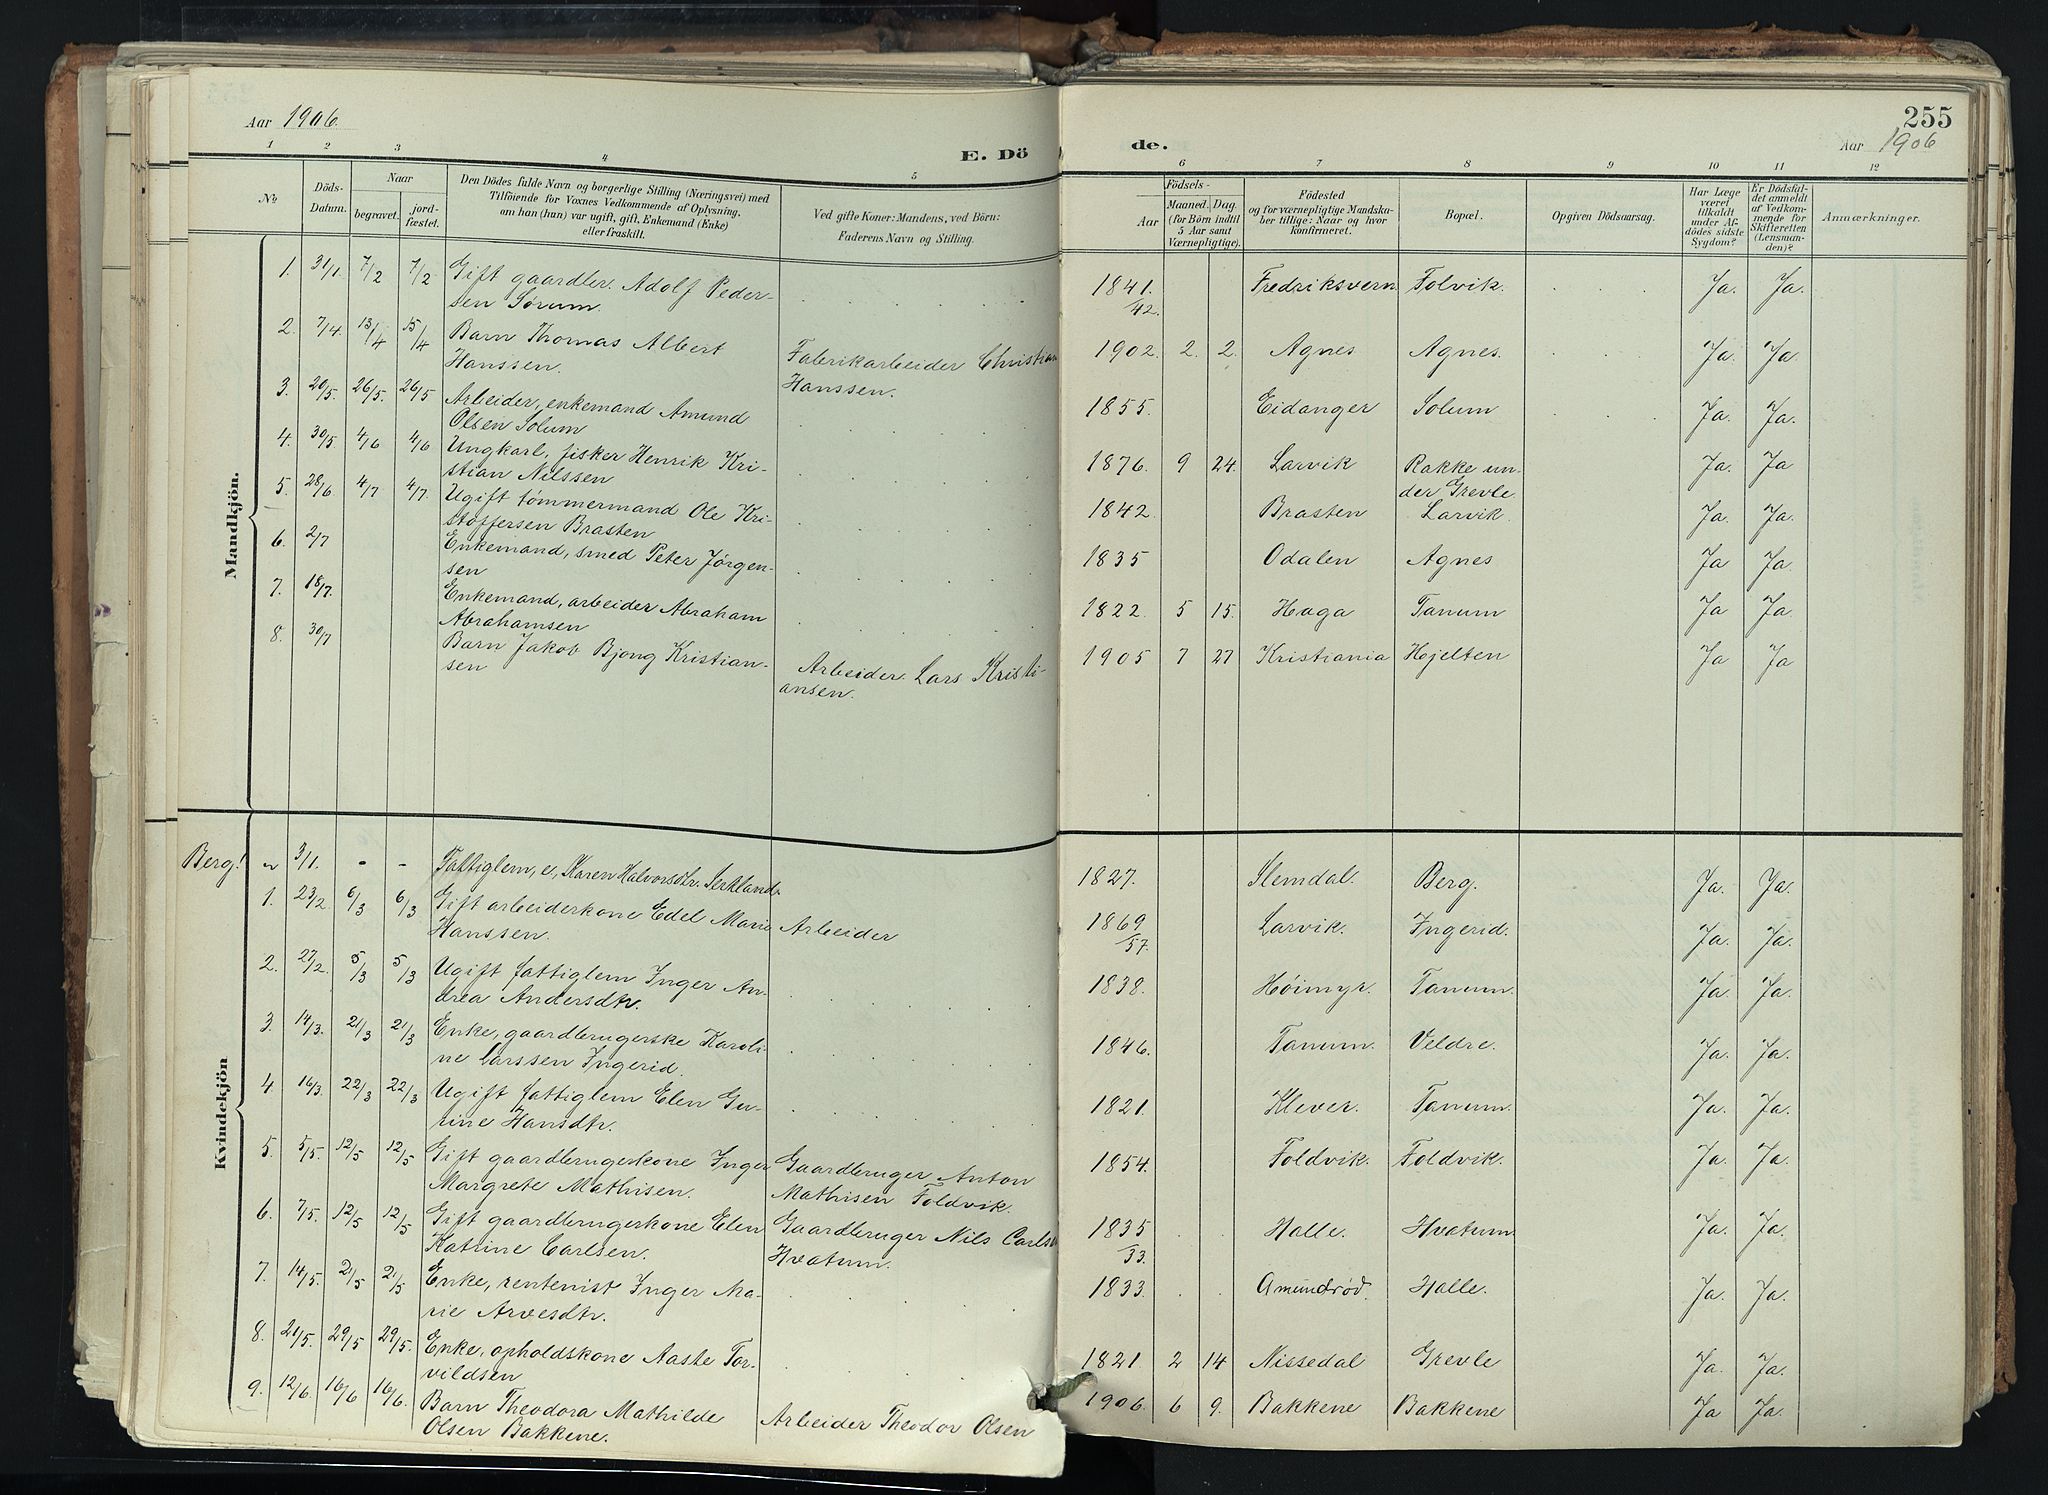 Aar 1906.
E. Dö
de.
255
Aar 1906
1 2 3 4 5 6 7 8 9 10 11 12
No
Döds-Datum.
Naar
begravet.
jord-fæstet.
Den Dödes fulde Navn og borgerlige Stilling (Næringsvei) med
Tilföiende for Voxnes Vedkommende af Oplysning,
om han (hun) var ugift, gift, Enkemand (Enke)
eller fraskilt.
Ved gifte Koner: Mandens, ved Börn:
Faderens Navn og Stilling.
Födsels-
Aar
Maaned. Dag.
(for Börn indtil
5 Aar samt
Værnepligtige).
Födested
og for værnepligtige Mandska-
ber tillige: Naar og hvor
konfirmeret.
Bopæl.
Opgiven Dödsaarsag.
Har Læge
været
tilkaldt
under Af-
dödes sidste
Sygdom?
Er Dödsfal-
det anmeldt
af Vedkom-
mende for
Skifteretten
(Lensman-
den)?
Anmærkninger.
Mandkjön.
1. 31/1 7/2 7/2 Gift gaardbr. Adolf Peder- 1841. Fredriksvern Folvik. Ja. Ja.
sen Sørum. /42.
2. 7/4. 13/4 15/4 Barn Thomas Albert Fabrikarbeider Christian 1902. 2. 2. Agnes Agnes. Ja. Ja
Hanssen. Hanssen.
3. 20/5. 26/5. 26/5 Arbeider, enkemand Amund 1855. Eidanger Solum Ja. Ja.
Olsen Solum
4. 30/5 4/6 4/6 Ungkarl, fisker Henrik Kri- 1876. 9 24. Larvik Rakke un- Ja. Ja
stian Nilssen der Grevle.
5. 28/6 4/7 4/7. Ugift tømmermand Ole Kri- 1842. Brasten Larvik. Ja. Ja.
stoffersen Brasten
6. 2/7 Enkemand, smed Peter Jørgen- 1835 Odalen Agnes Ja Ja.
sen
7. 18/7. Enkemand, arbeider Abraham 1822 5 15. Haga Tanum Ja Ja
Abrahamsen
8. 30/7 Barn Jakob Bjong Kristian- Arbeider. Lars Kristi- 1905 7 27 Kristiania Hjelten Ja Ja
sen ansen.
Kvindekjön
Berg! 3/1. - - Fattiglem, e, Karen Halvorsdtr. Serkland. 1827. Slemdal. Berg. Ja. Ja.
1. 23/2 6/3 6/3 Gift arbeiderkone Edel Marie Arbeider 1869 Larvik. Ingerid. Ja. Ja.
Hanssen. /57.
2. 27/2. 5/3 5/3 Ugift fattiglem Inger An- 1838. Høimyr. Tanum. Ja. Ja.
drea Andersdtr.
3. 14/3. 21/3 21/3 Enke, gaardbrugerske Karoli- 1846. Tanum. Veldre. Ja. Ja.
ne Larssen Ingerid.
4. 16/3. 22/3 22/3 Ugift fattiglem Elen Gu- 1821. Klever. Tanum. Ja. Ja.
rine Hansdtr.
5. 5/5. 12/5 12/5 Gift gaardbrugerkone Inger Gaardbruger Anton 1854. Foldvik. Foldvik. Ja. Ja.
Margrete Mathisen. Mathisen Foldvik.
6. 7/5. 12/5 12/5 Gift gaardbrugerkone Elen Gaardbruger Nils Carlsen 1835 Halle. Hvatum. Ja. Ja.
Katrine Carlsen. Hvatum. /33.
7. 14/5. 21/5 21/5 Enke, rentenist Inger Ma- 1833. Amundrød. Halle. Ja. Ja.
rie Arvesdtr.
8. 21/5. 29/5 29/5. Enke, opholdskone Aaste Tor- 1821. 2 14 Nissedal Grevle Ja. Ja.
vildsen
9. 12/6. 16/6 16/6. Barn Theodora Mathilde Arbeider Theodor Olsen 1906. 6 9. Bakkene Bakkene Ja Ja.
Olsen Bakkene.